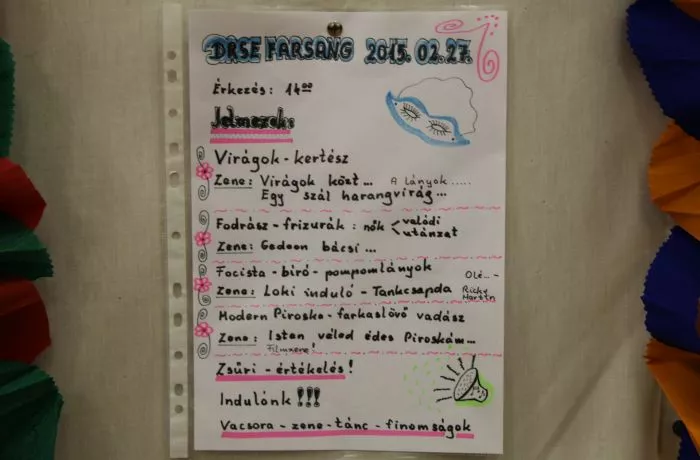 DRSE FARSANG 2015. 02. 27.
Érkezés: 14⁰⁰
Jelmezek:
Virágok - kertész
Zene: Virágok közt... A lányok.....
Egy szál harangvirág...
Fodrász - frizurák: nők < valódi
utánzat
Zene: Gedeon bácsi...
Focista - bíró - pompomlányok
Zene: Loki induló - Tankcsapda
Olé...-
Ricky
Martin
Modern Piroska - farkaslövő vadász
Zene: Isten véled édes Piroskám...
Filmzene!
Zsűri - értékelés!
Indulónk !!!
Vacsora - zene - tánc - finomságok